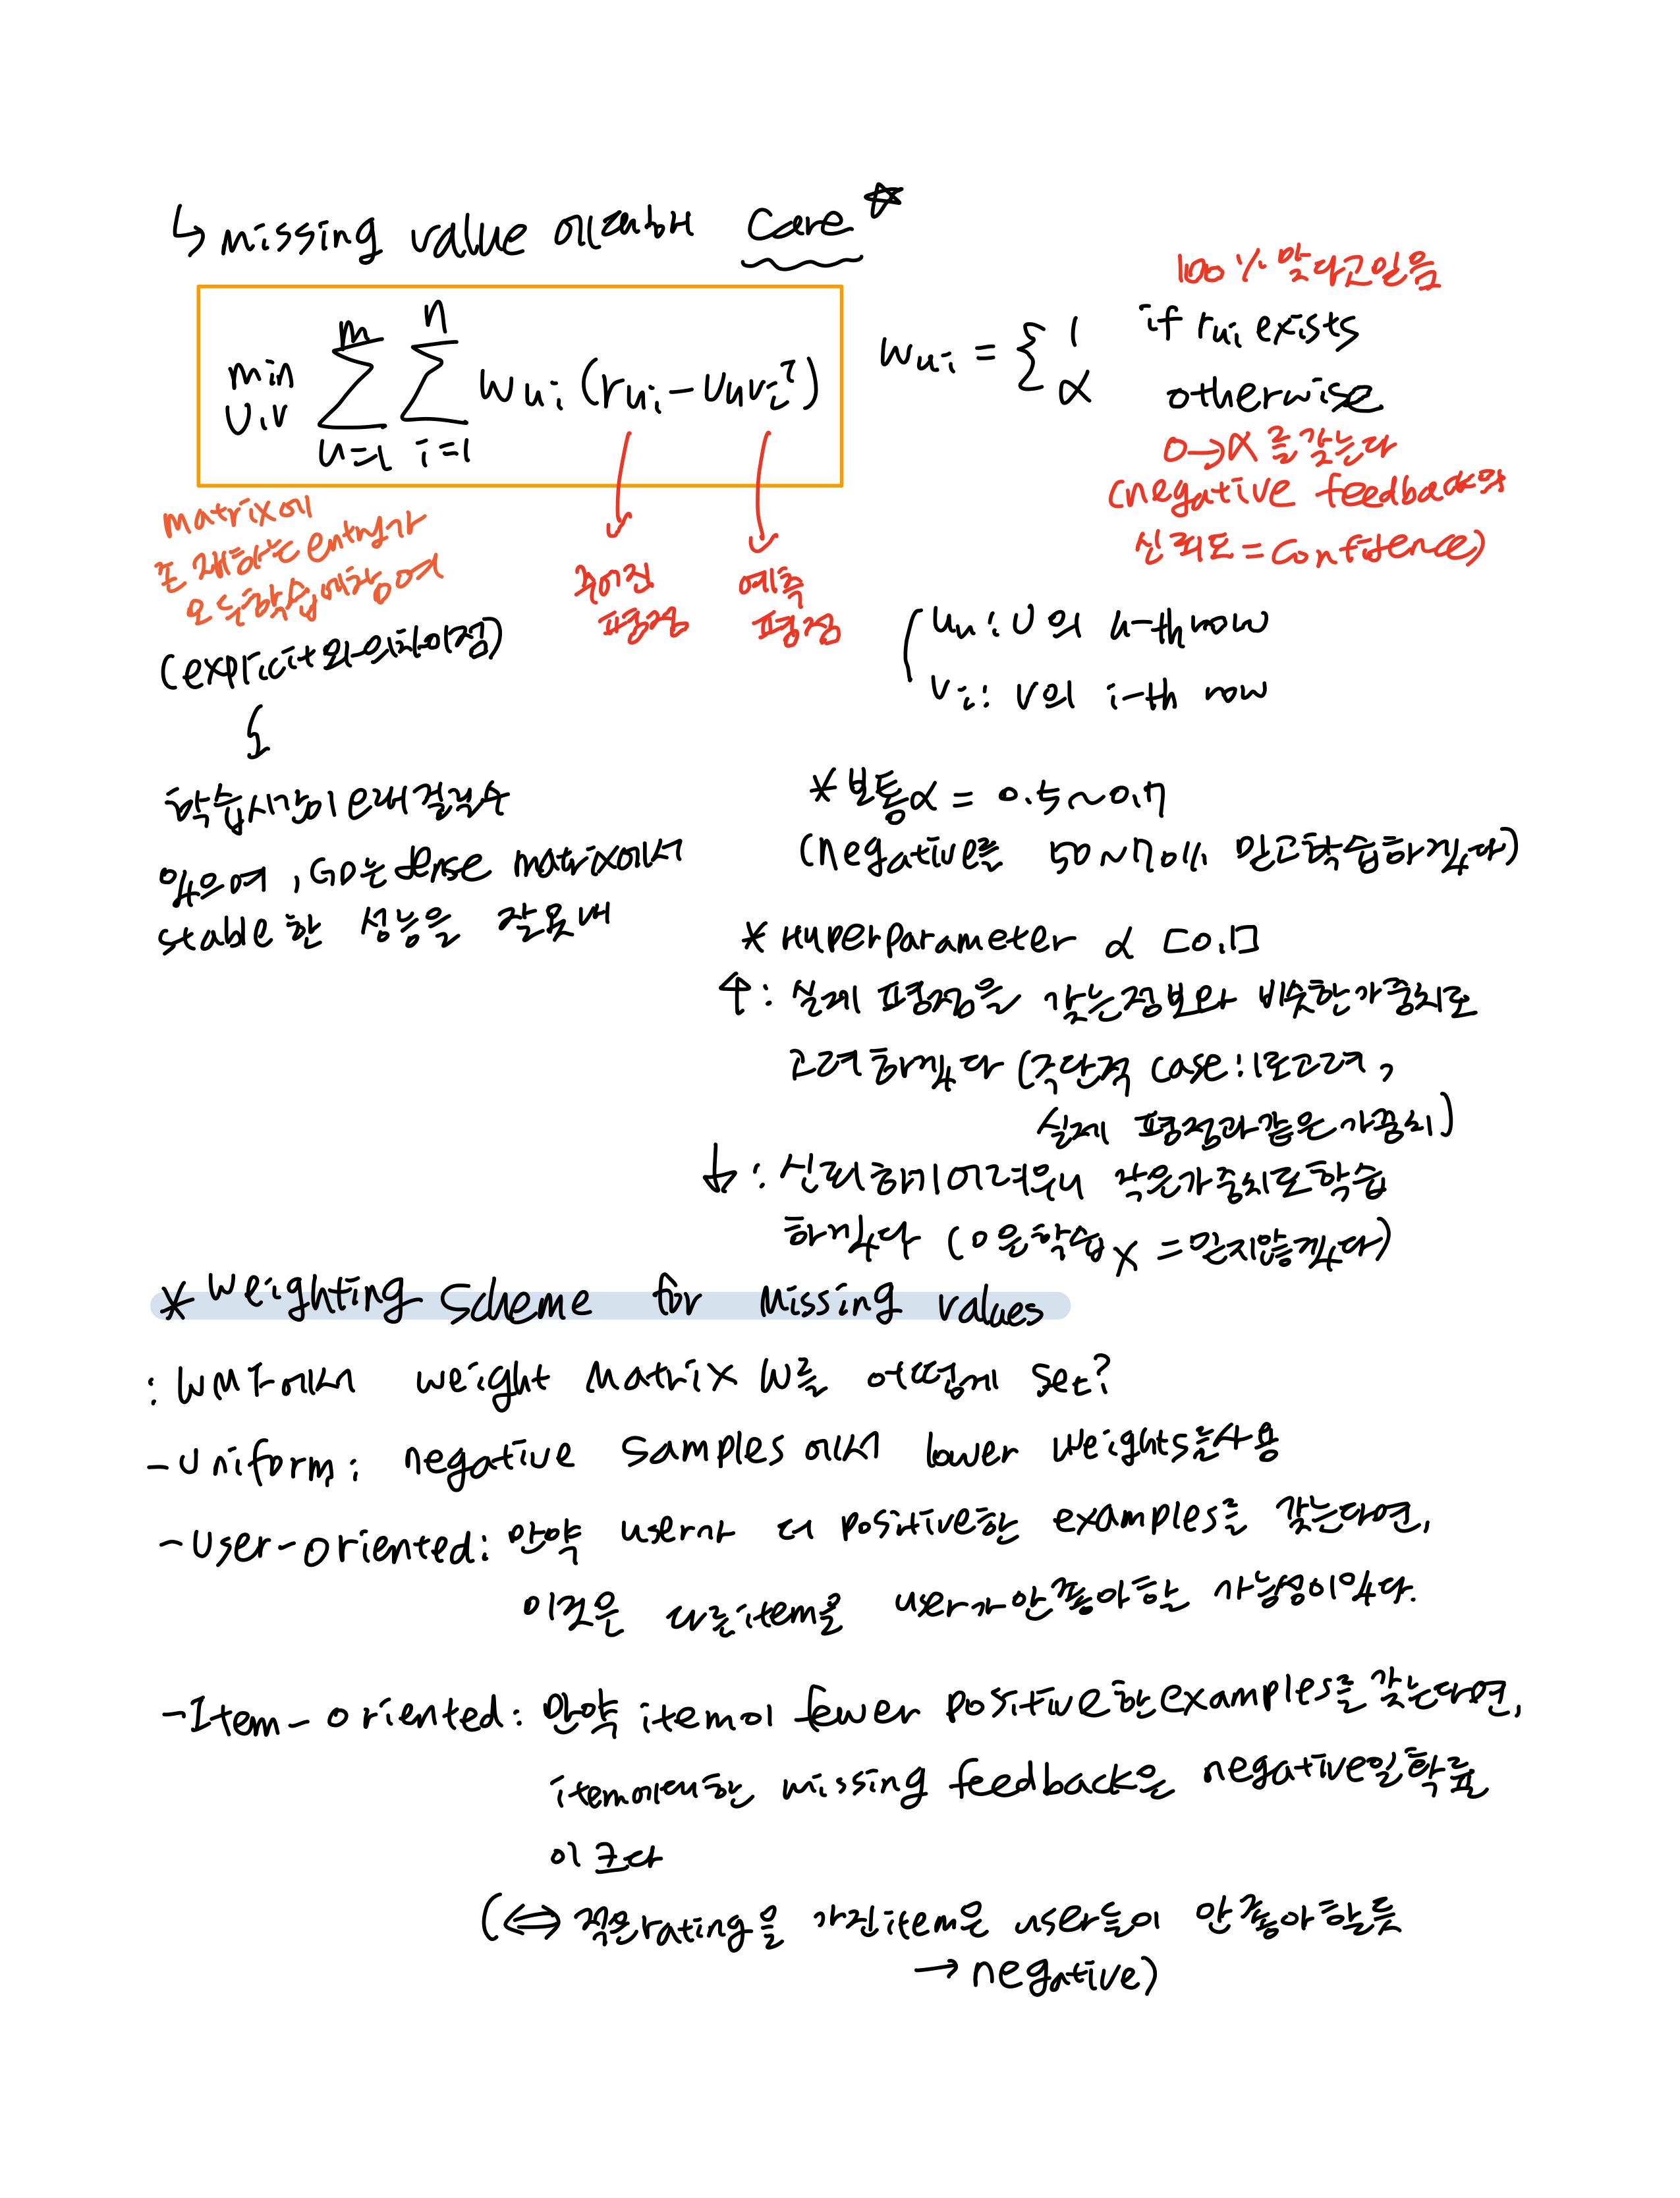 ↳ missing value에 대해 care ☆
min U,V m Σ u=1 n Σ i=1 w_ui (r_ui - u_u v_i^T)
w_ui = { 1 if r_ui exists
α otherwise
100% 맞다고 믿음
0→α를 갖는다
(negative feedback의
신뢰도 = confidence)
matrix에
존재하는 entry가
모두 학습에 참여
(explicit와의 차이점)
주어진
평점
예측
평점
u_u : U의 u-th row
v_i : V의 i-th row
학습시간이 오래 걸릴 수
있으며, GD는 dense matrix에서
stable한 성능을 잘 못내
* 보통 α = 0.5~0.7
(negative를 50~70% 믿고 학습하겠다)
* Hyperparameter α [0,1]
↑ : 실제 평점을 갖는 정보와 비슷한 가중치로
고려하겠다 (극단적 case : 1로 고려,
실제 평점과 같은 가중치)
↓ : 신뢰하기 어려우니 작은 가중치로 학습
하겠다 (0은 학습 X = 믿지 않겠다)
* Weighting Scheme for Missing values
: WMF에서 weight Matrix W를 어떻게 set?
- Uniform : negative samples에서 lower weights를 사용
- User-oriented : 만약 user가 더 positive한 examples를 갖는다면,
이것은 다른 item을 user가 안좋아할 가능성이 있다.
- Item-oriented : 만약 item이 fewer positive한 examples를 갖는다면,
item에 대한 missing feedback은 negative일 확률
이 크다
(⇔ 적은 rating을 가진 item은 users들이 안좋아할 듯
→ negative)